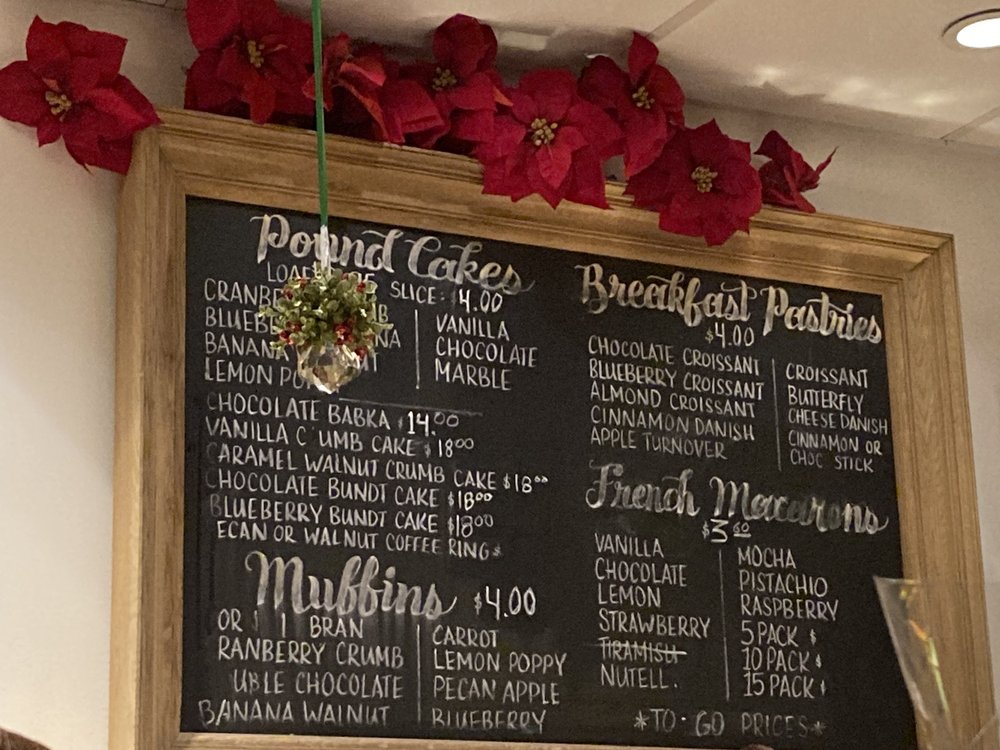 Pound Cakes
SLICE: $4.00
VANILLA
CHOCOLATE
BANANA
MARBLE
LEMON
CHOCOLATE BABKA $14.00
VANILLA C UMB CAKE $18.00
ARAMEL WALNUT CRUMB CAKE $18.00
CHOCOLATE BUNDT CAKE $18.00
BLUEBERRY BUNDT CAKE $18.00
ECAN OR WALNUT COFFEE RING $
Muffins $4.00
OR BRAN
RANBERRY CRUMB
UBLE CHOCOLATE
BANANA WALNUT
CARROT
LEMON POPPY
PECAN APPLE
BLUEBERRY
Breakfast Pastries
$4.00
CHOCOLATE CROISSANT
BLUEBERRY CROISSANT
ALMOND CROISSANT
CINNAMON DANISH
APPLE TURNOVER
CROISSANT
BUTTERFLY
CHEESE DANISH
CINNAMON OR
CHOC STICK
French Macarons
$3.60
VANILLA
CHOCOLATE
LEMON
STRAWBERRY
TIRAMISU
NUTELL.
MOCHA
PISTACHIO
RASPBERRY
5 PACK $
10 PACK $
15 PACK $
*TO-GO PRICES*